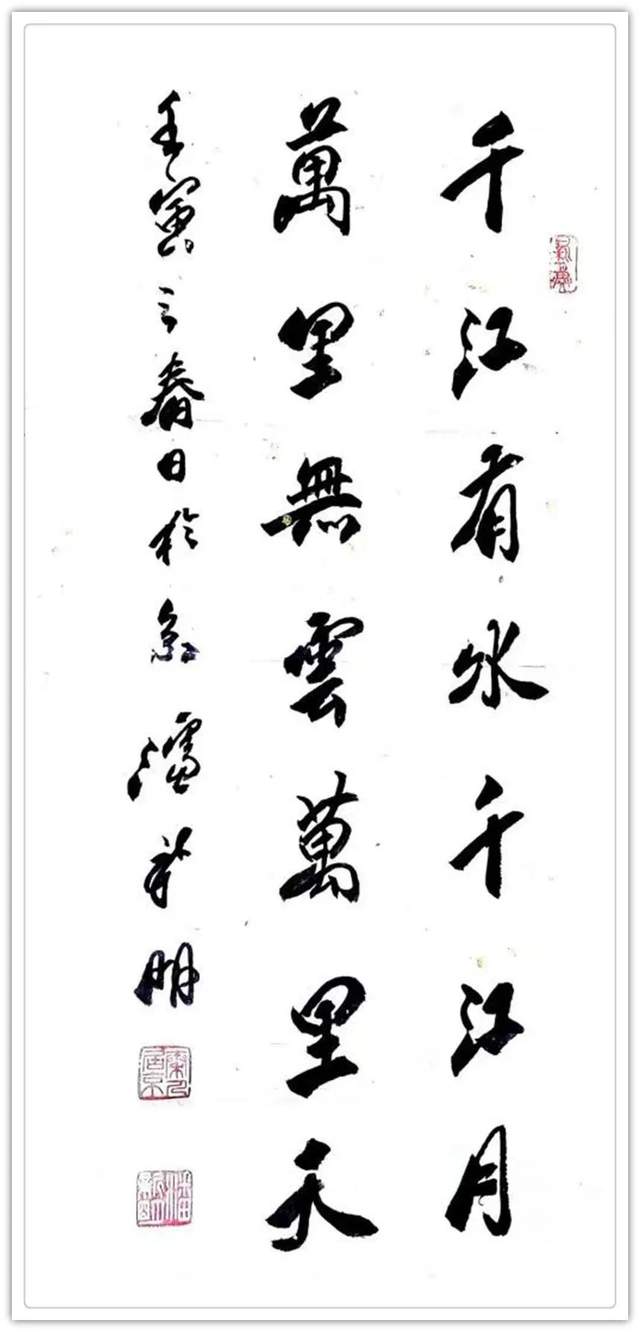 千江有水千江月
萬里無雲萬里天
壬寅之春日於京潘新明